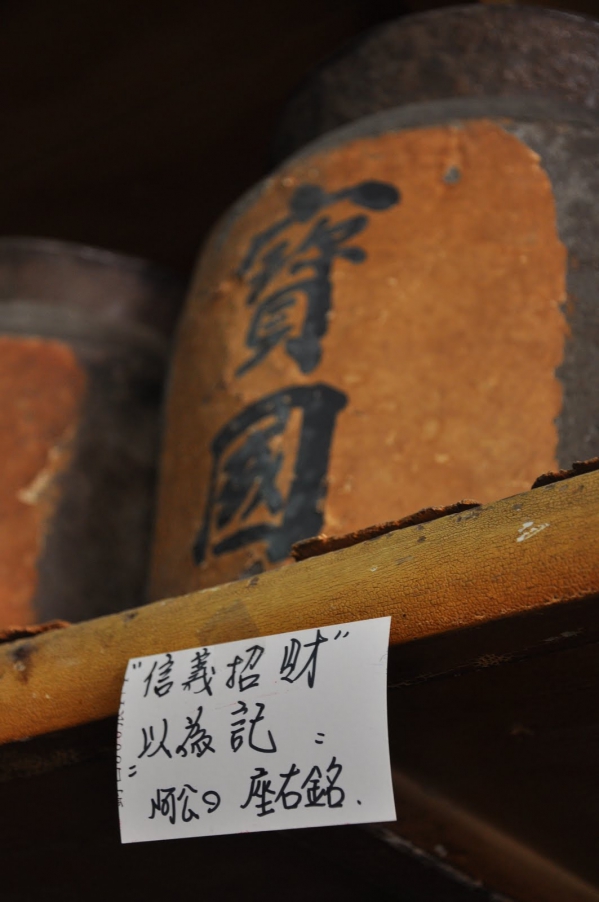 寶國
"信義招財"
以為記
阿公の 座右銘.